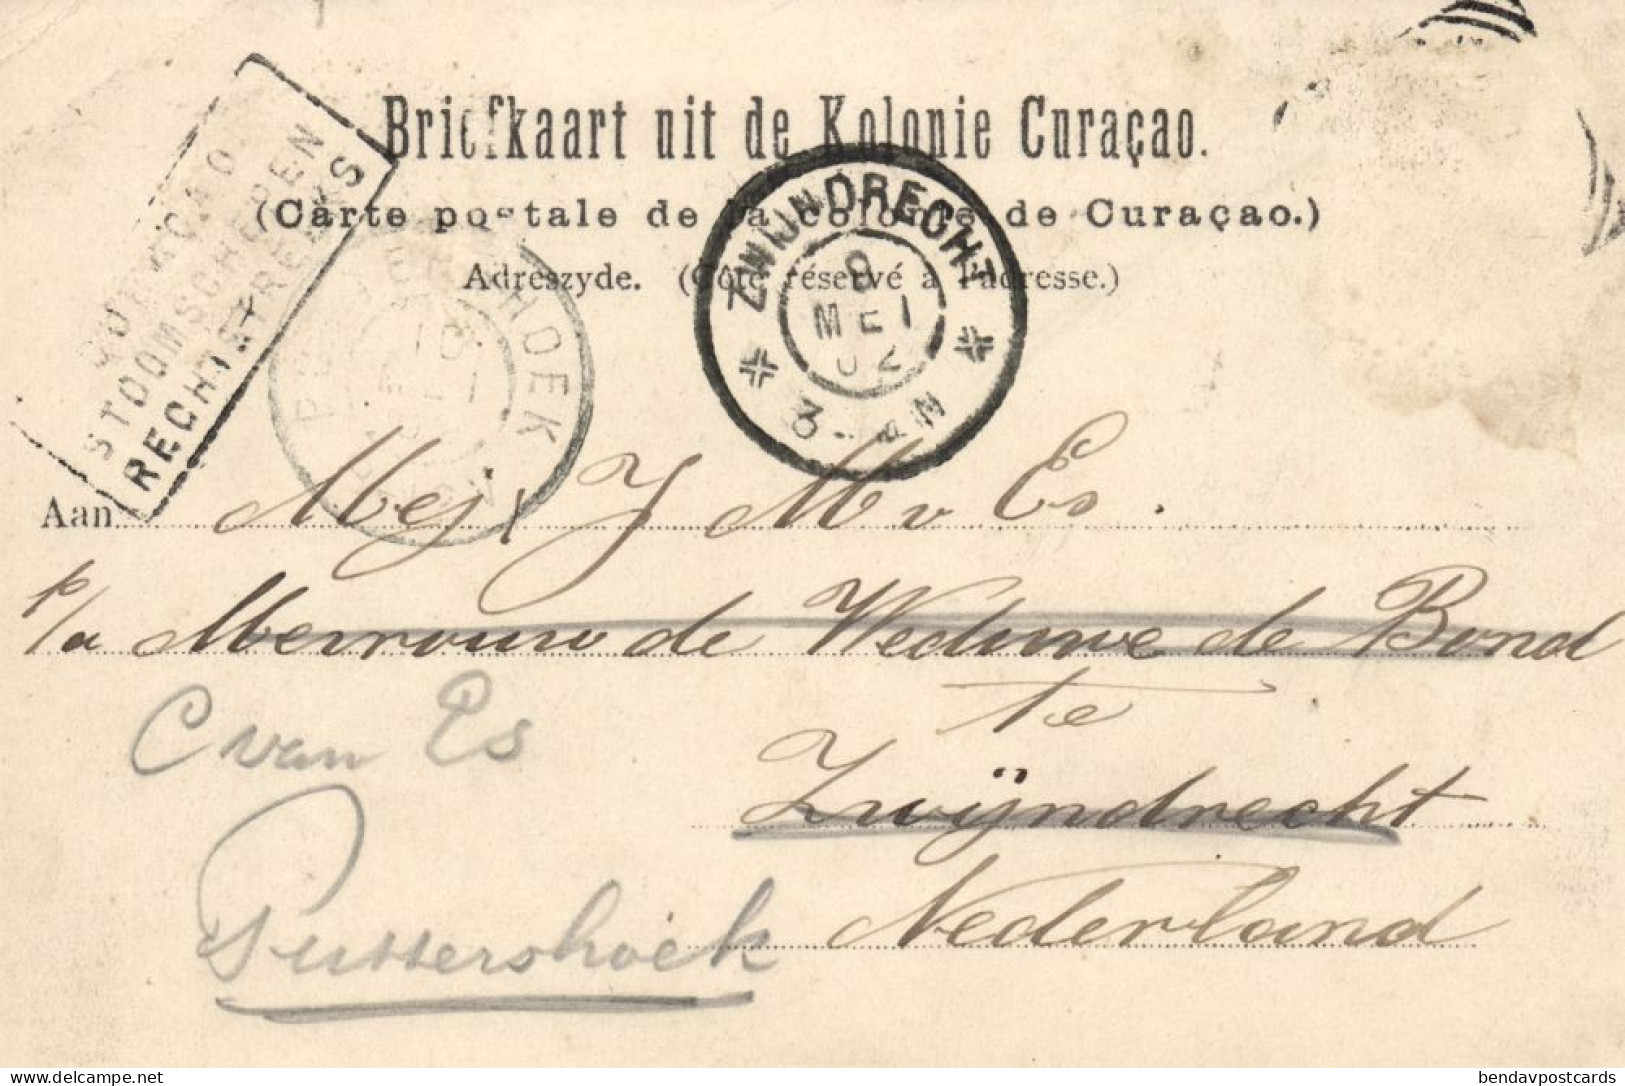 Briefkaart uit de Kolonie Curaçao.
(Carte postale de la colonie de Curaçao.)
Adreszyde. (Côté réservé à l'adresse.)
CURACAO
STOOMSCHEPEN
RECHTSTREEKS
ZWIJNDRECHT
8
MEI
02
3-4N
HOEK
Aan Mej J M v Es.
p/a Mevrouw de Weduwe de Bond
te
C van Es
Zwijndrecht
Puttershoek
Nederland
delcampe.net
bendavpostcards